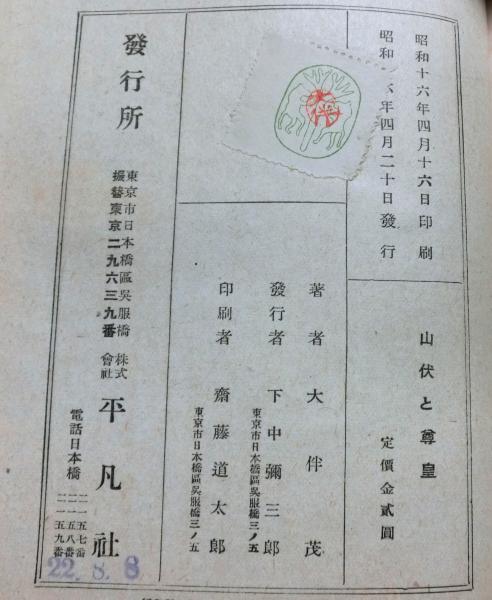 昭和十六年四月十六日印刷
昭和 六年四月二十日發行
山伏と尊皇
定價金貳圓
著者 大伴茂
發行者 下中彌三郎
東京市日本橋區吳服橋三ノ五
印刷者 齋藤道太郎
東京市日本橋區吳服橋三ノ五
發行所
東京市日本橋區吳服橋
振替東京二九六三九番
株式會社 平凡社
電話日本橋
二一五七番
二一五八番
二一五九番
大伴
22.8.8